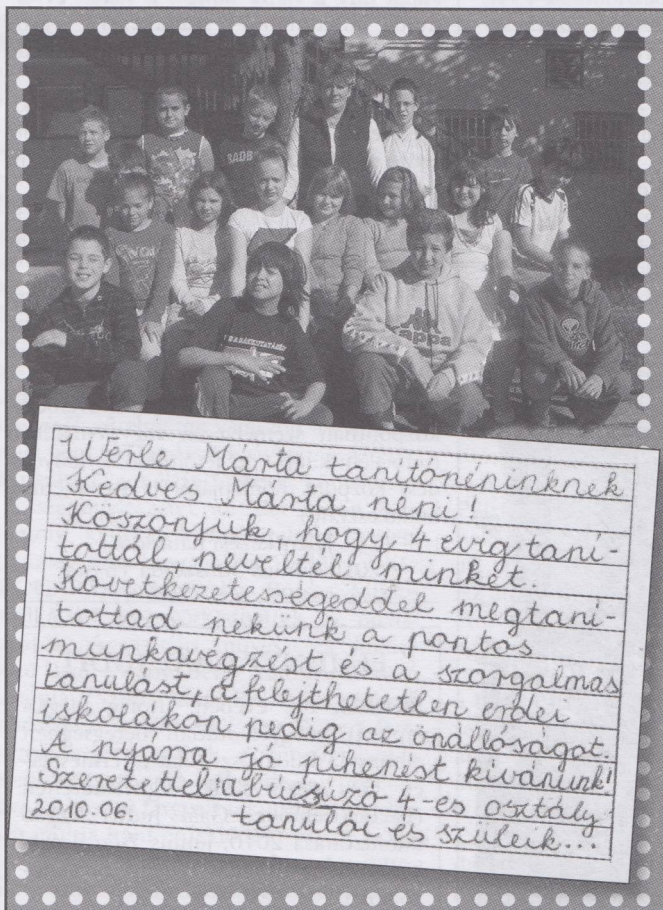 RADB
appa
Werle Márta tanítónéninknek
Kedves Márta néni!
Köszönjük, hogy 4 évig taní-
tottál, neveltél minket.
Következetességeddel megtaní-
tottad nekünk a pontos
munkavégzést és a szorgalmas
tanulást, a felejthetetlen erdei
iskolákon pedig az önállóságot.
A nyárra jó pihenést kívánunk!
Szeretettel a búcsúzó 4-es osztály
2010.06. tanulói és szüleik...